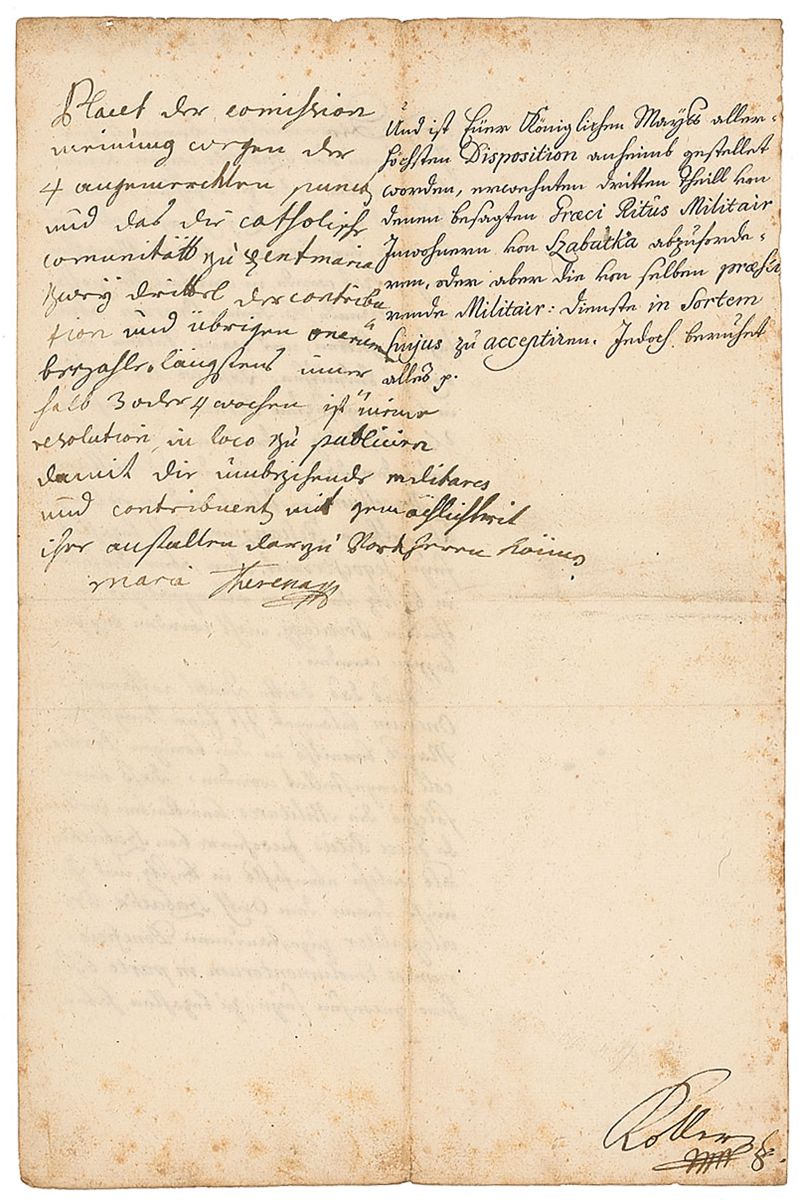 Placet der comission
meinung wegen der
4 angemerckten punct
und das die catholische
comunitätt zu zentmaria
zwey drittel der contribu
tion und übrigen onerum
bezahle, längstens inner
halb 3 oder 4 wochen ist meine
resolution in loco zu publiciren
damit die umbziehende militares
und contribuent mit gemächlichkeit
ihre anstalten darzu Vorkherren könne
maria Theresia
Und ist Euer Königlichen Mayts aller-
höchsten Disposition anheimb gestellet
worden, erwehnten dritten Theill von
denen besagten Græci Ritus Militair
Inwohnern von Szabatka abzuforde-
ren, oder aber die von selben præsti
rende Militair: Dienste in Sortem
hujus zu acceptiren. Jedoch beruhet
alles p.
Koller